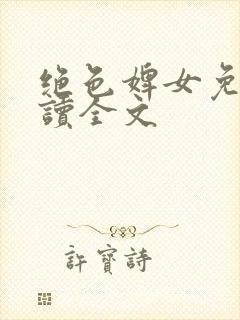 絕色婢女免
讀全文
許寶詩